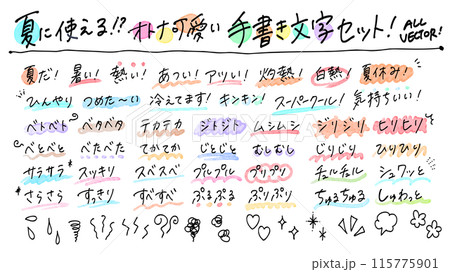 夏に使える!? オトナ可愛い 手書き文字セット! ALL VECTOR!
夏だ! 暑い! 熱い! あつい! アツい! 灼熱! 白熱! 夏休み!
ひんやり つめた〜い 冷えてます! キンキン! スーパークール! 気持ちいい!
ベトベト ベタベタ テカテカ ジトジト ムシムシ ジリジリ ヒリヒリ
べとべと べたべた てかてか じとじと むしむし じりじり ひりひり
サラサラ スッキリ スベスベ プルプル プリプリ チュルチュル シュワッと
さらさら すっきり すべすべ ぷるぷる ぷりぷり ちゅるちゅる しゅわっと
PIXTA
pixta.jp - 115775901